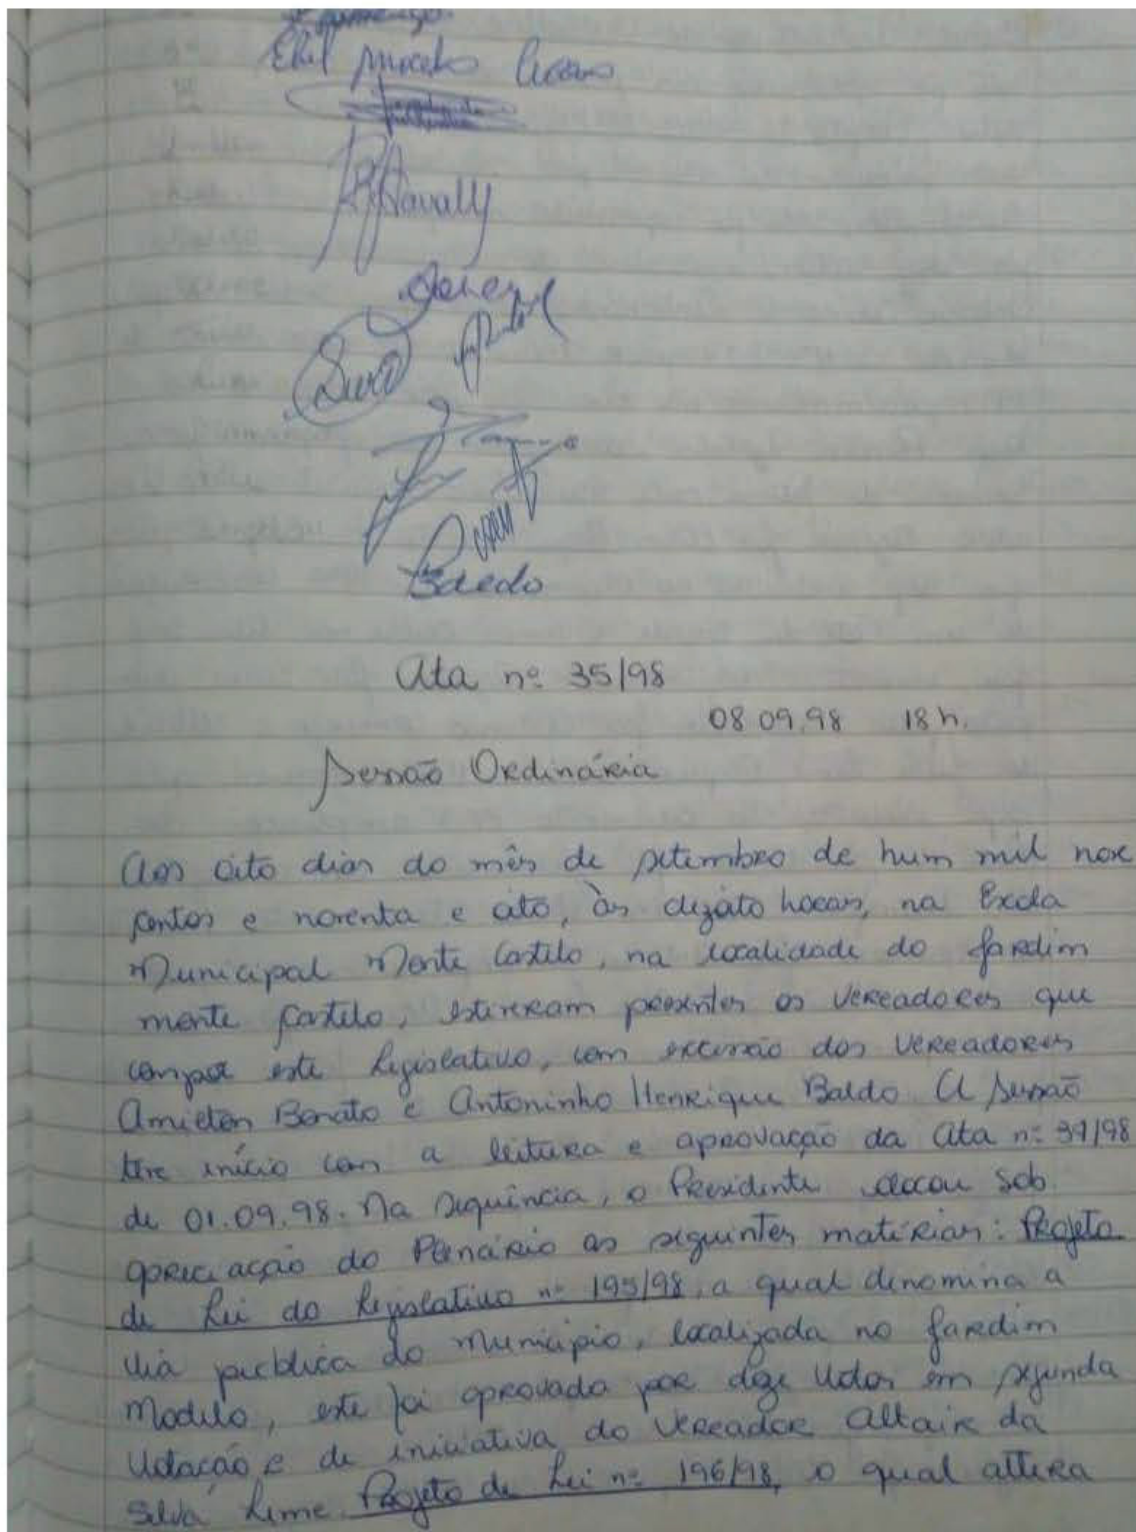 Baldo
Ata nº 35/98
08.09.98 18 h.
Sessão Ordinária
Aos oito dias do mês de setembro de hum mil nove
centos e noventa e oito, às dezoito horas, na Escola
Municipal Monte Castelo, na localidade do Jardim
Monte Castelo, estiveram presentes os Vereadores que
este Legislativo, com excessão dos Vereadores
Amilton Bonato e Antoninho Henrique Baldo. A Sessão
teve início com a leitura e aprovação da Ata nº 34/98
de 01.09.98. Na sequência, o Presidente colocou sob
apreciação do Plenário as seguintes matérias: Projeto
de Lei do Legislativo nº 195/98, a qual denomina a
via publica do município, localizada no Jardim
Modelo, este foi aprovado por doze votos em segunda
Votação e de iniciativa do Vereador Altair da
Silva Leme. Projeto de Lei nº 196/98, o qual altera